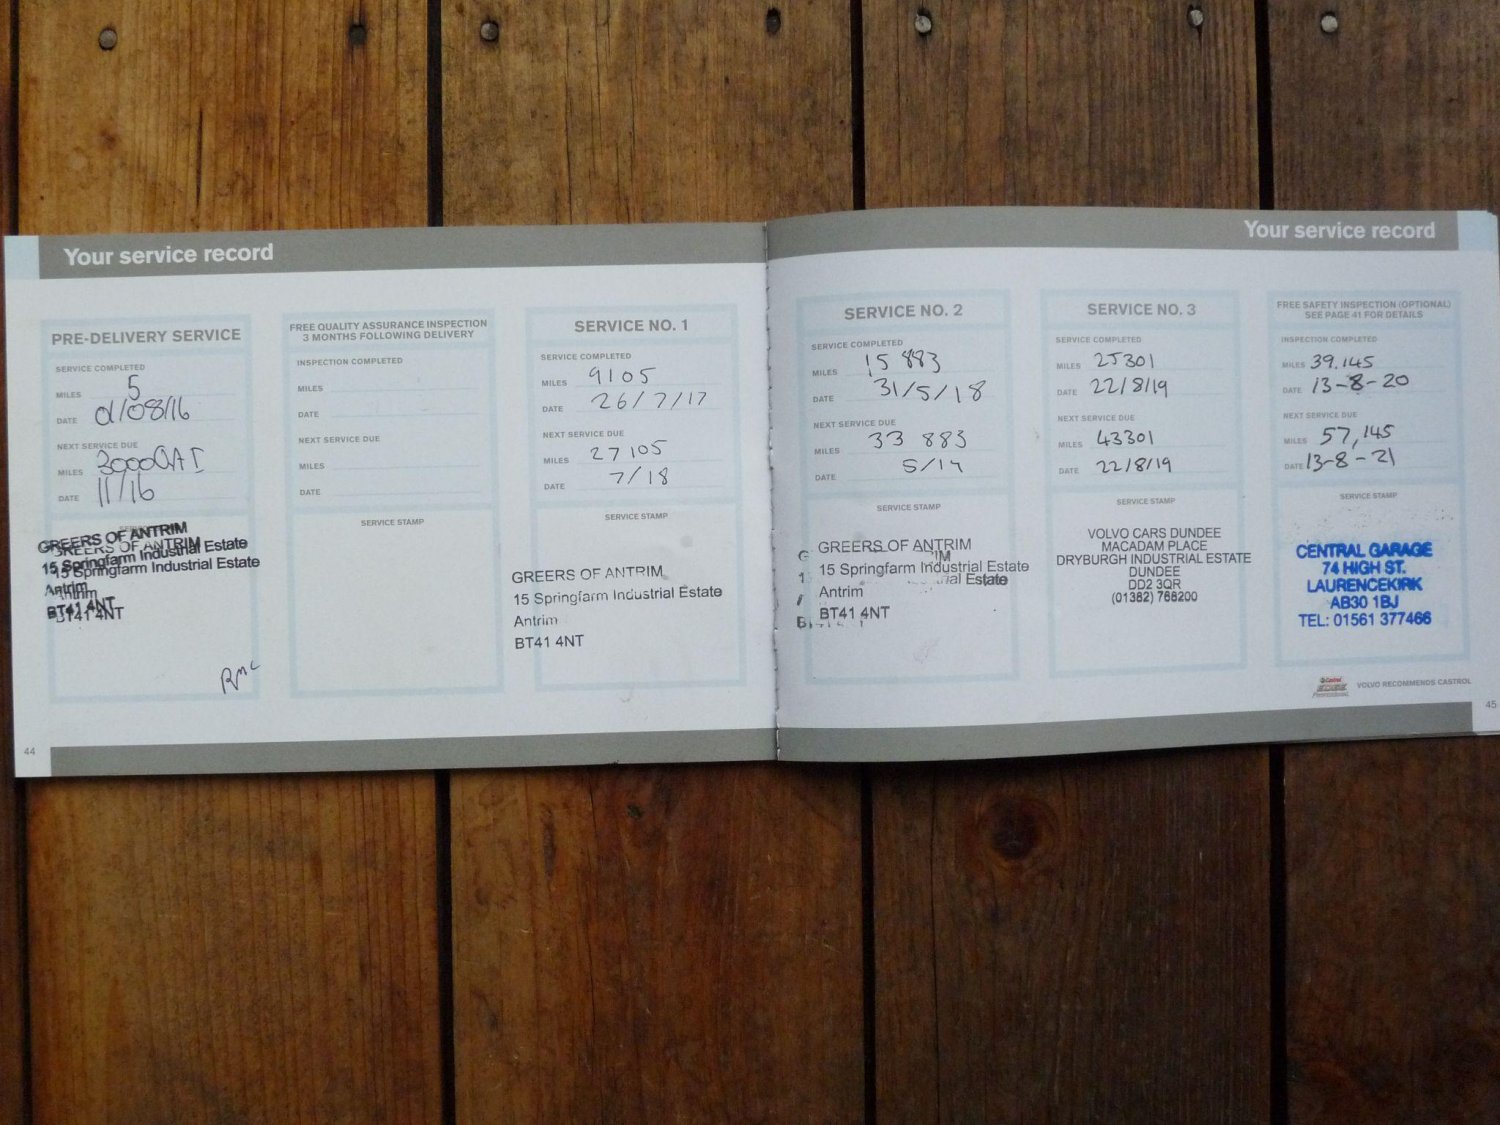 Your service record
PRE-DELIVERY SERVICE
SERVICE COMPLETED
MILES 5
DATE 01/08/16
NEXT SERVICE DUE
MILES
DATE 11/16
GREERS OF ANTRIM
GREERS OF ANTRIM
15 Springfarm Industrial Estate
15 Springfarm Industrial Estate
Antrim
Antrim
BT41 4NT
BT41 4NT
FREE QUALITY ASSURANCE INSPECTION
3 MONTHS FOLLOWING DELIVERY
INSPECTION COMPLETED
MILES
DATE
NEXT SERVICE DUE
MILES
DATE
SERVICE STAMP
SERVICE NO. 1
SERVICE COMPLETED
MILES 9105
DATE 26/7/17
NEXT SERVICE DUE
MILES 27105
DATE 7/18
SERVICE STAMP
GREERS OF ANTRIM
15 Springfarm Industrial Estate
Antrim
BT41 4NT
44
Your service record
SERVICE NO. 2
SERVICE COMPLETED
MILES 15 883
DATE 31/5/18
NEXT SERVICE DUE
MILES 33 883
DATE
SERVICE STAMP
GREERS OF ANTRIM
15 Springfarm Industrial Estate
Estate
Antrim
BT41 4NT
SERVICE NO. 3
SERVICE COMPLETED
MILES 25301
DATE 22/8/19
NEXT SERVICE DUE
MILES 43301
DATE 22/8/19
SERVICE STAMP
VOLVO CARS DUNDEE
MACADAM PLACE
DRYBURGH INDUSTRIAL ESTATE
DUNDEE
DD2 3QR
(01382) 768200
FREE SAFETY INSPECTION (OPTIONAL)
SEE PAGE 41 FOR DETAILS
INSPECTION COMPLETED
MILES 39.145
DATE 13-8-20
NEXT SERVICE DUE
MILES 57,145
DATE 13-8-21
SERVICE STAMP
CENTRAL GARAGE
74 HIGH ST.
LAURENCEKIRK
AB30 1BJ
TEL: 01561 377466
Castrol
EDGE
Professional
VOLVO RECOMMENDS CASTROL
45